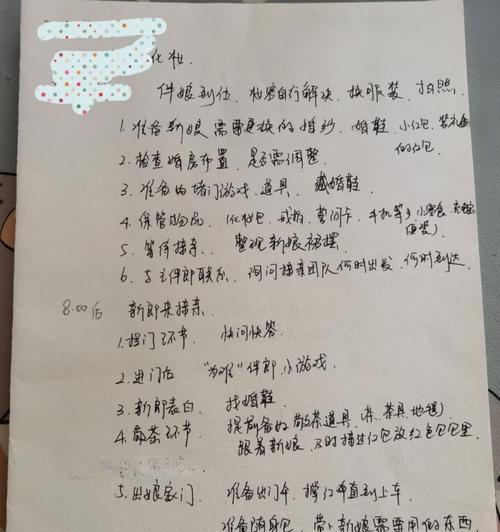 化妆.
伴娘到位. 妆容自行解决. 换服装. 拍照
1. 准备新娘需要更换的婚纱. 婚鞋. 小红包. 装
的红包
2. 检查婚房布置. 是否需调整
3. 准备的堵门游戏. 道具. 藏婚鞋
4. 保管物品. 化妆包. 戒指. 誓词卡. 手机等 小零食.
5. 等待接亲. 整理新娘裙摆.
6. 与主伴郎联系. 询问接亲团队何时出发. 何时到达
8:00后 新郎来接亲.
1. 拦门环节. 快问快答
2. 进门后 "为难"伴郎 小游戏.
3. 新郎表白. 找婚鞋
4. 敬茶环节. 提前备好敬茶道具. 茶. 茶具. 地毯)
跟着新娘. 及时接过红包放红色包包里.
5. 出娘家门. 准备出门伞. 撑红伞直到上车.
准备随身包. 带上新娘需要用的东西